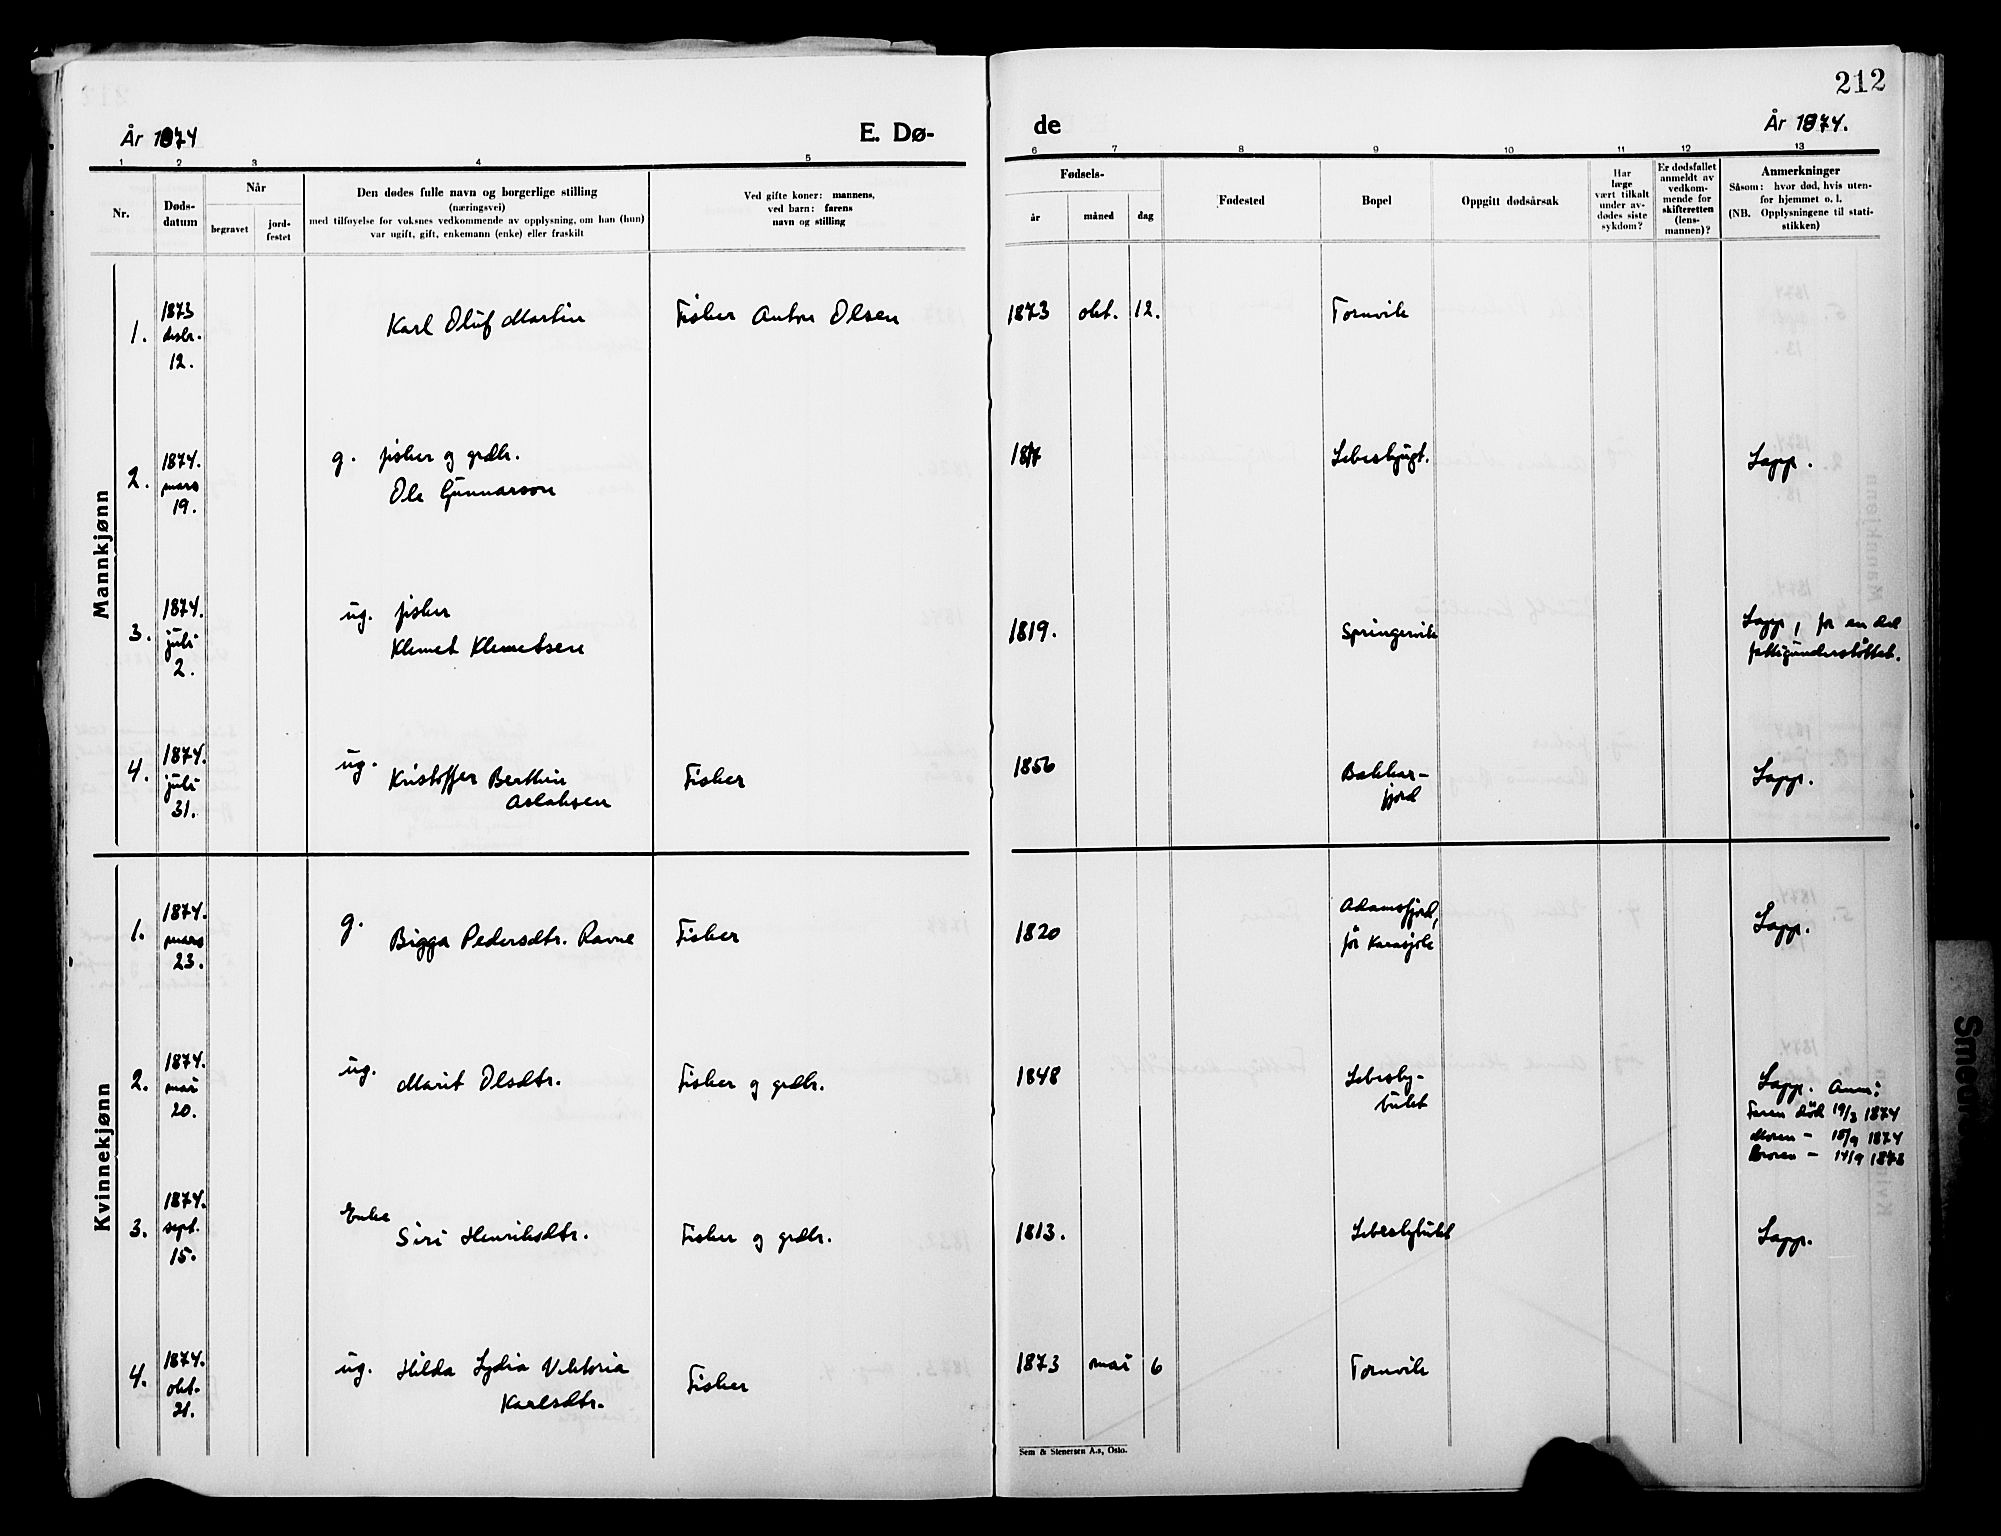 212
År 1874
E. Dø-
de
År 1874.
1 2 3 4 5
6 7 8 9 10 11 12 13
Nr.
Døds-
datum
Når
begravet
jord-
festet
Den dødes fulle navn og borgerlige stilling
(næringsvei)
med tilføyelse for voksnes vedkommende av opplysning, om han (hun)
var ugift, gift, enkemann (enke) eller fraskilt
Ved gifte koner: mannens,
ved barn: farens
navn og stilling
Fødsels-
år
måned
dag
Fødested
Bopel
Oppgitt dødsårsak
Har
læge
vært tilkalt
under av-
dødes siste
sykdom?
Er dødsfallet
anmeldt av
vedkom-
mende for
skifteretten
(lens-
mannen)?
Anmerkninger
Såsom: hvor død, hvis uten-
for hjemmet o. l.
(NB. Opplysningene til stati-
stikken)
Mannkjønn
1.
1873
desbr.
12.
Karl Oluf Martin
Fisker Anton Olsen
1873 okt. 12.
Tornvik
2.
1874.
mars
19.
g. fisker og grdbr.
Ole Gunnarson
1817
Lebesbygt.
Lapp.
3.
1874.
juli
2.
ug. fisker
Klemet Klemetsen
1819.
Springervik
Lapp, for en del
fattigunderstøttet.
4.
1874.
juli
31.
ug.
Kristoffer Berthin
Aslaksen
Fisker
1856
Bakkar-
fjord
Lapp.
Kvinnekjønn
1.
1874.
mars
23.
g.
Bigga Pedersdtr. Ravne
Fisker
1820
Adamsfjord,
før Karasjok
Lapp.
2.
1874.
mai
20.
ug.
Marit Olsdtr.
Fisker og grdbr.
1848
Lebesby-
bukt
Lapp. Anm:
Faren död 19/3 1874
Moren – 15/9 1874
Broren – 14/9 1873
3.
1874.
sept.
15.
Enke
Siri Henriksdtr.
Fisker og grdbr.
1813.
Lebesbybukt
Lapp.
4.
1874.
okt.
21.
ug. Hilda Lydia Viktoria
Karlsdtr.
Fisker
1873 mai 6
Tornvik
Sem & Stenersen A.s, Oslo.